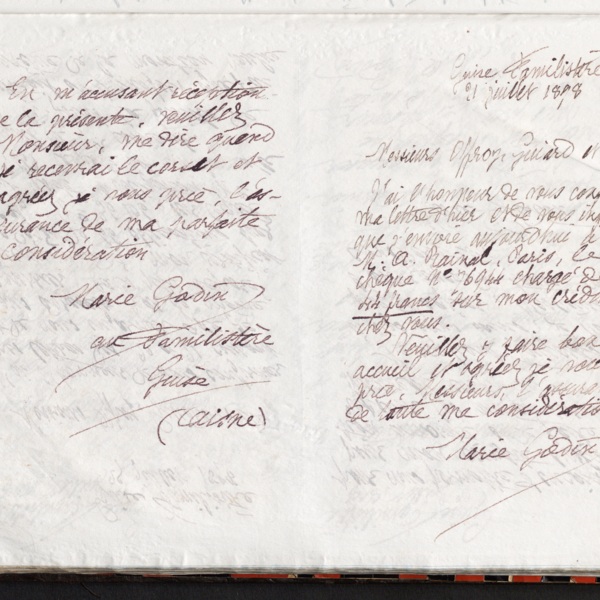 En m'accusant réception
de la présente, veuillez
Monsieur, me dire quand
je recevrai le corset et
agréez je vous prie, l'as-
surance de ma parfaite
considération
Marie Godin
au Familistère
Guise
(Aisne)
Guise Familistère
21 juillet 1898
Messieurs Offroy, Guiard
J'ai l'honneur de vous
ma lettre d'hier et de vous
que j'envoie aujourd'hui
M. A. Rainal, Paris, le
chèque N° 6944 chargé de
francs sur mon crédit
chez vous.
Veuillez y faire bon
accueil et agréez je vous
prie, Messieurs,
de toute ma considération
Marie Godin